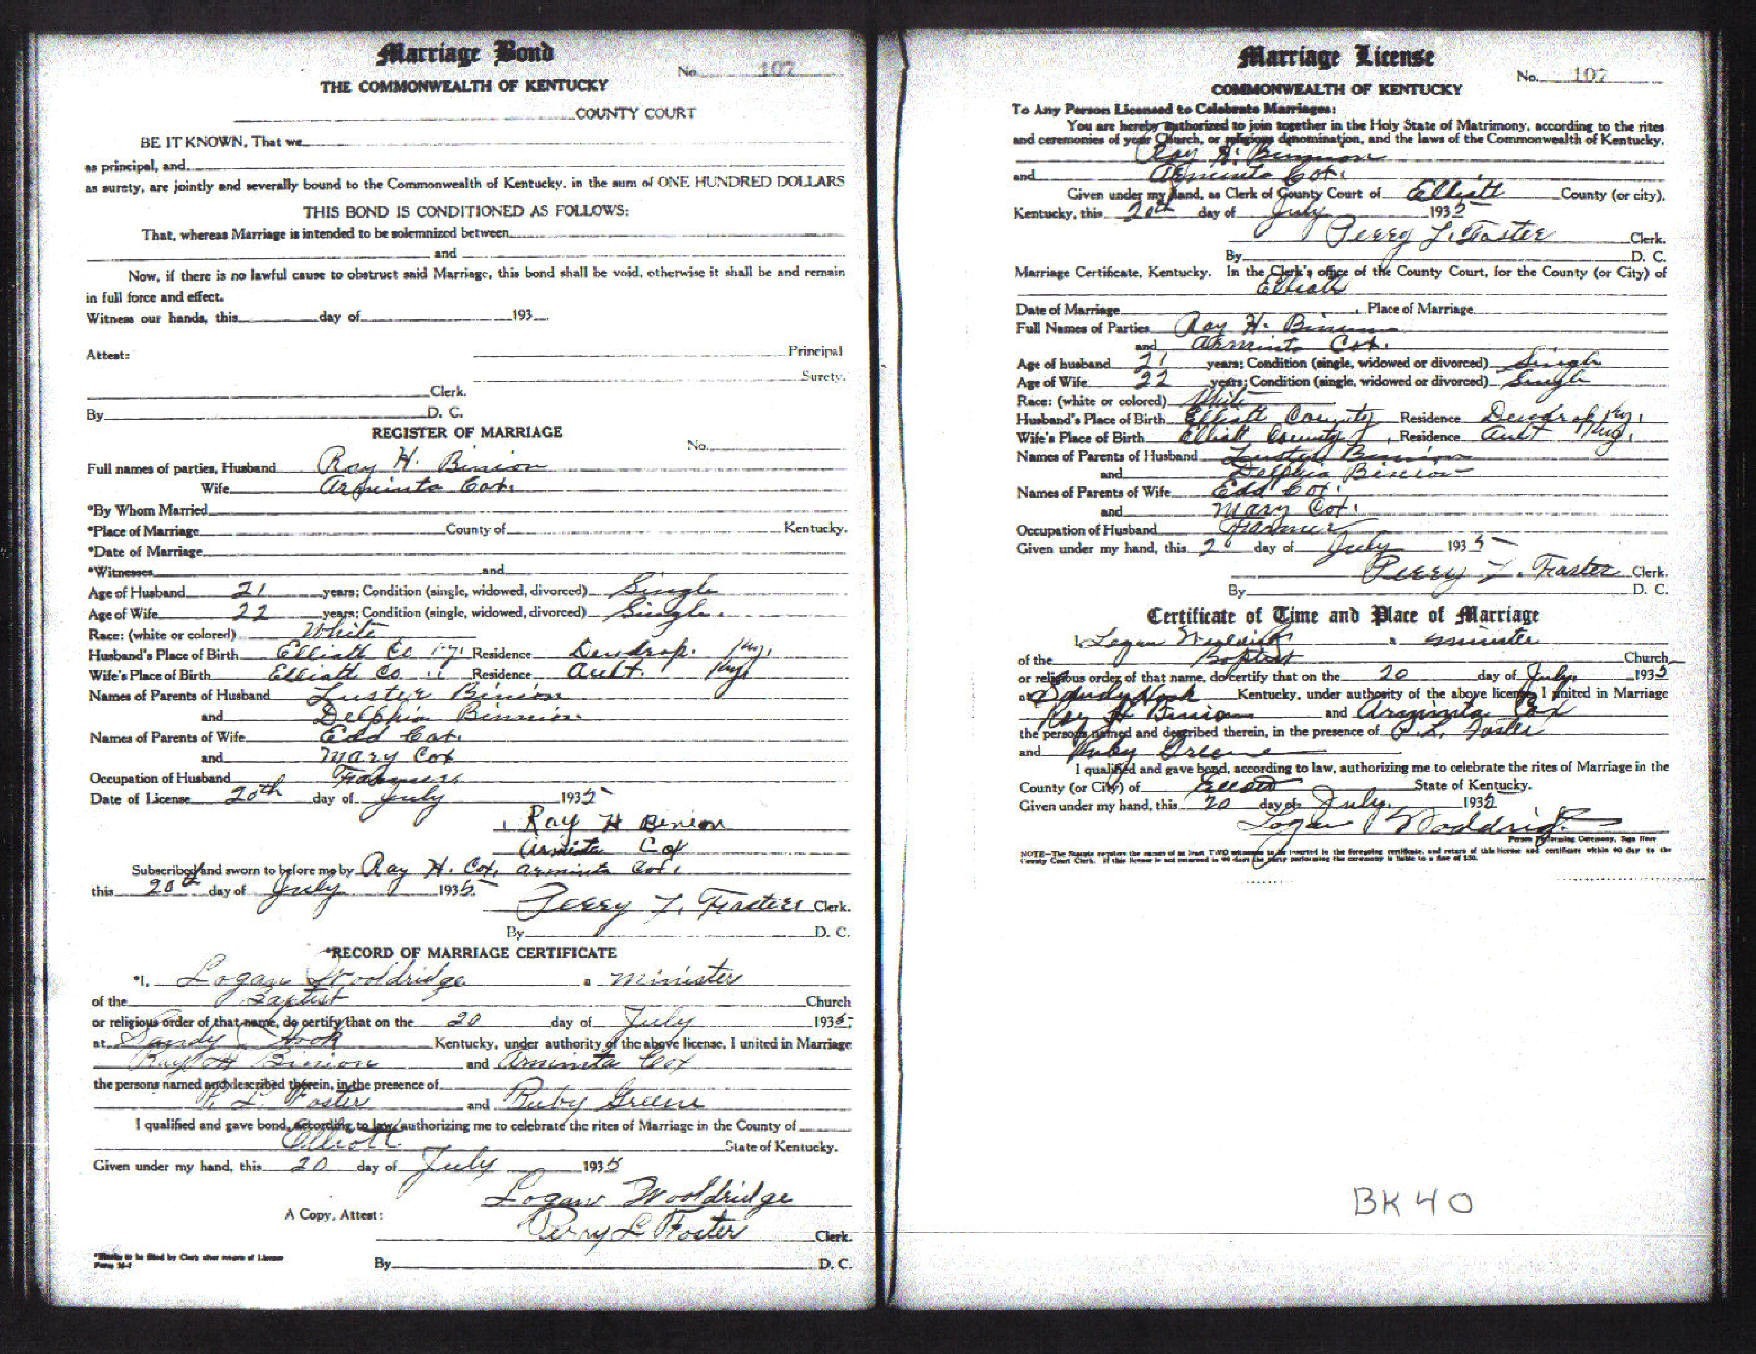 Marriage Bond
No. 107
THE COMMONWEALTH OF KENTUCKY
COUNTY COURT
BE IT KNOWN, That we
as principal, and
as surety, are jointly and severally bound to the Commonwealth of Kentucky, in the sum of ONE HUNDRED DOLLARS
THIS BOND IS CONDITIONED AS FOLLOWS:
That, whereas Marriage is intended to be solemnized between
and
Now, if there is no lawful cause to obstruct said Marriage, this bond shall be void, otherwise it shall be and remain
in full force and effect.
Witness our hands, this day of 193
Attest: Principal
Surety.
Clerk.
By D. C.
REGISTER OF MARRIAGE
No.
Full names of parties, Husband Ray H. Binion
Wife Arminta Cox.
*By Whom Married
*Place of Marriage County of Kentucky.
*Date of Marriage
*Witnesses and
Age of Husband 21 years; Condition (single, widowed, divorced) Single
Age of Wife 22 years; Condition (single, widowed, divorced) Single.
Race: (white or colored) White
Husband's Place of Birth Elliott Co Ky. Residence Dewdrop. Ky.
Wife's Place of Birth Elliott Co " Residence Ault. Ky.
Names of Parents of Husband Luster Binion
and Delphia Binnion
Names of Parents of Wife Edd Cox.
and Mary Cox
Occupation of Husband Farmer
Date of License 20th day of July 1935
Ray H Binion
Arminta Cox
Subscribed and sworn to before me by Ray H. Cox, Arminta Cox.
this 20th day of July 1935.
Perry L. Foster Clerk.
By D. C.
*RECORD OF MARRIAGE CERTIFICATE
*I, Logan Wooldridge a minister
of the Baptist Church
or religious order of that name, do certify that on the 20 day of July 1935,
at Sandy Hook Kentucky, under authority of the above license, I united in Marriage
Ray H Binion and Arminta Cox
the persons named and described therein, in the presence of
P. L. Foster and Ruby Greene
I qualified and gave bond, according to law, authorizing me to celebrate the rites of Marriage in the County of
Elliott State of Kentucky.
Given under my hand, this 20 day of July 1935
Logan Wooldridge
A Copy, Attest: Perry L Foster Clerk.
*Blanks to be filled by Clerk after return of License
By D. C.
Marriage License
No. 107
COMMONWEALTH OF KENTUCKY
To Any Person Licensed to Celebrate Marriages:
You are hereby authorized to join together in the Holy State of Matrimony, according to the rites
and ceremonies of your Church, or religious denomination, and the laws of the Commonwealth of Kentucky,
Ray H. Binnion
and Arminta Cox.
Given under my hand, as Clerk of County Court of Elliott County (or city),
Kentucky, this 20th day of July 1935
Perry L. Foster Clerk.
By D. C.
Marriage Certificate, Kentucky. In the Clerk's office of the County Court, for the County (or City) of
Elliott
Date of Marriage , Place of Marriage
Full Names of Parties Ray H. Binion
and Arminta Cox.
Age of husband 21 years; Condition (single, widowed or divorced) Single
Age of Wife 22 years; Condition (single, widowed or divorced) Single
Race: (white or colored) White
Husband's Place of Birth Elliott County Residence Dewdrop Ky.
Wife's Place of Birth Elliott County , Residence Ault Ky.
Names of Parents of Husband Luster Binnion
and Delphia Binion
Names of Parents of Wife Edd Cox.
and Mary Cox.
Occupation of Husband Farmer
Given under my hand, this 2 day of July 1935
Perry L. Foster Clerk.
By D. C.
Certificate of Time and Place of Marriage
I, Logan a minister
of the Baptist Church
or religious order of that name, do certify that on the 20 day of July. 1935
at Sandy Hook Kentucky, under authority of the above license, I united in Marriage
Ray H Binion and Arminta Cox
the persons named and described therein, in the presence of P. L. Foster
and Ruby Greene
I qualified and gave bond, according to law, authorizing me to celebrate the rites of Marriage in the
County (or City) of Elliott State of Kentucky.
Given under my hand, this 20 day of July. 1935
Logan
Person Performing Ceremony, Sign Here
NOTE—The Statute requires the names of at least TWO witnesses to be inserted in the foregoing certificate, and return of this license and certificate within 90 days to the
County Court Clerk. If this license is not returned in 90 days the party performing the ceremony is liable to a fine of $50.
BK 40